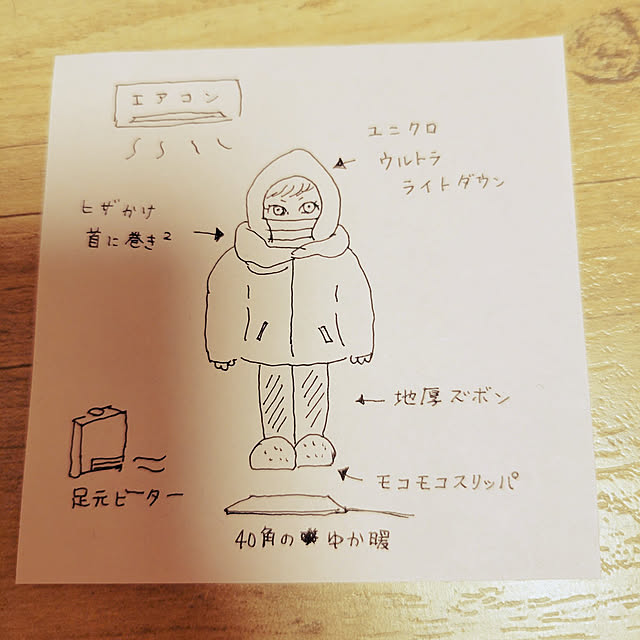 エアコン
ユニクロ
ウルトラ
ライトダウン
ヒザかけ
首に巻き²
地厚ズボン
モコモコスリッパ
足元ヒーター
40角の ゆか暖